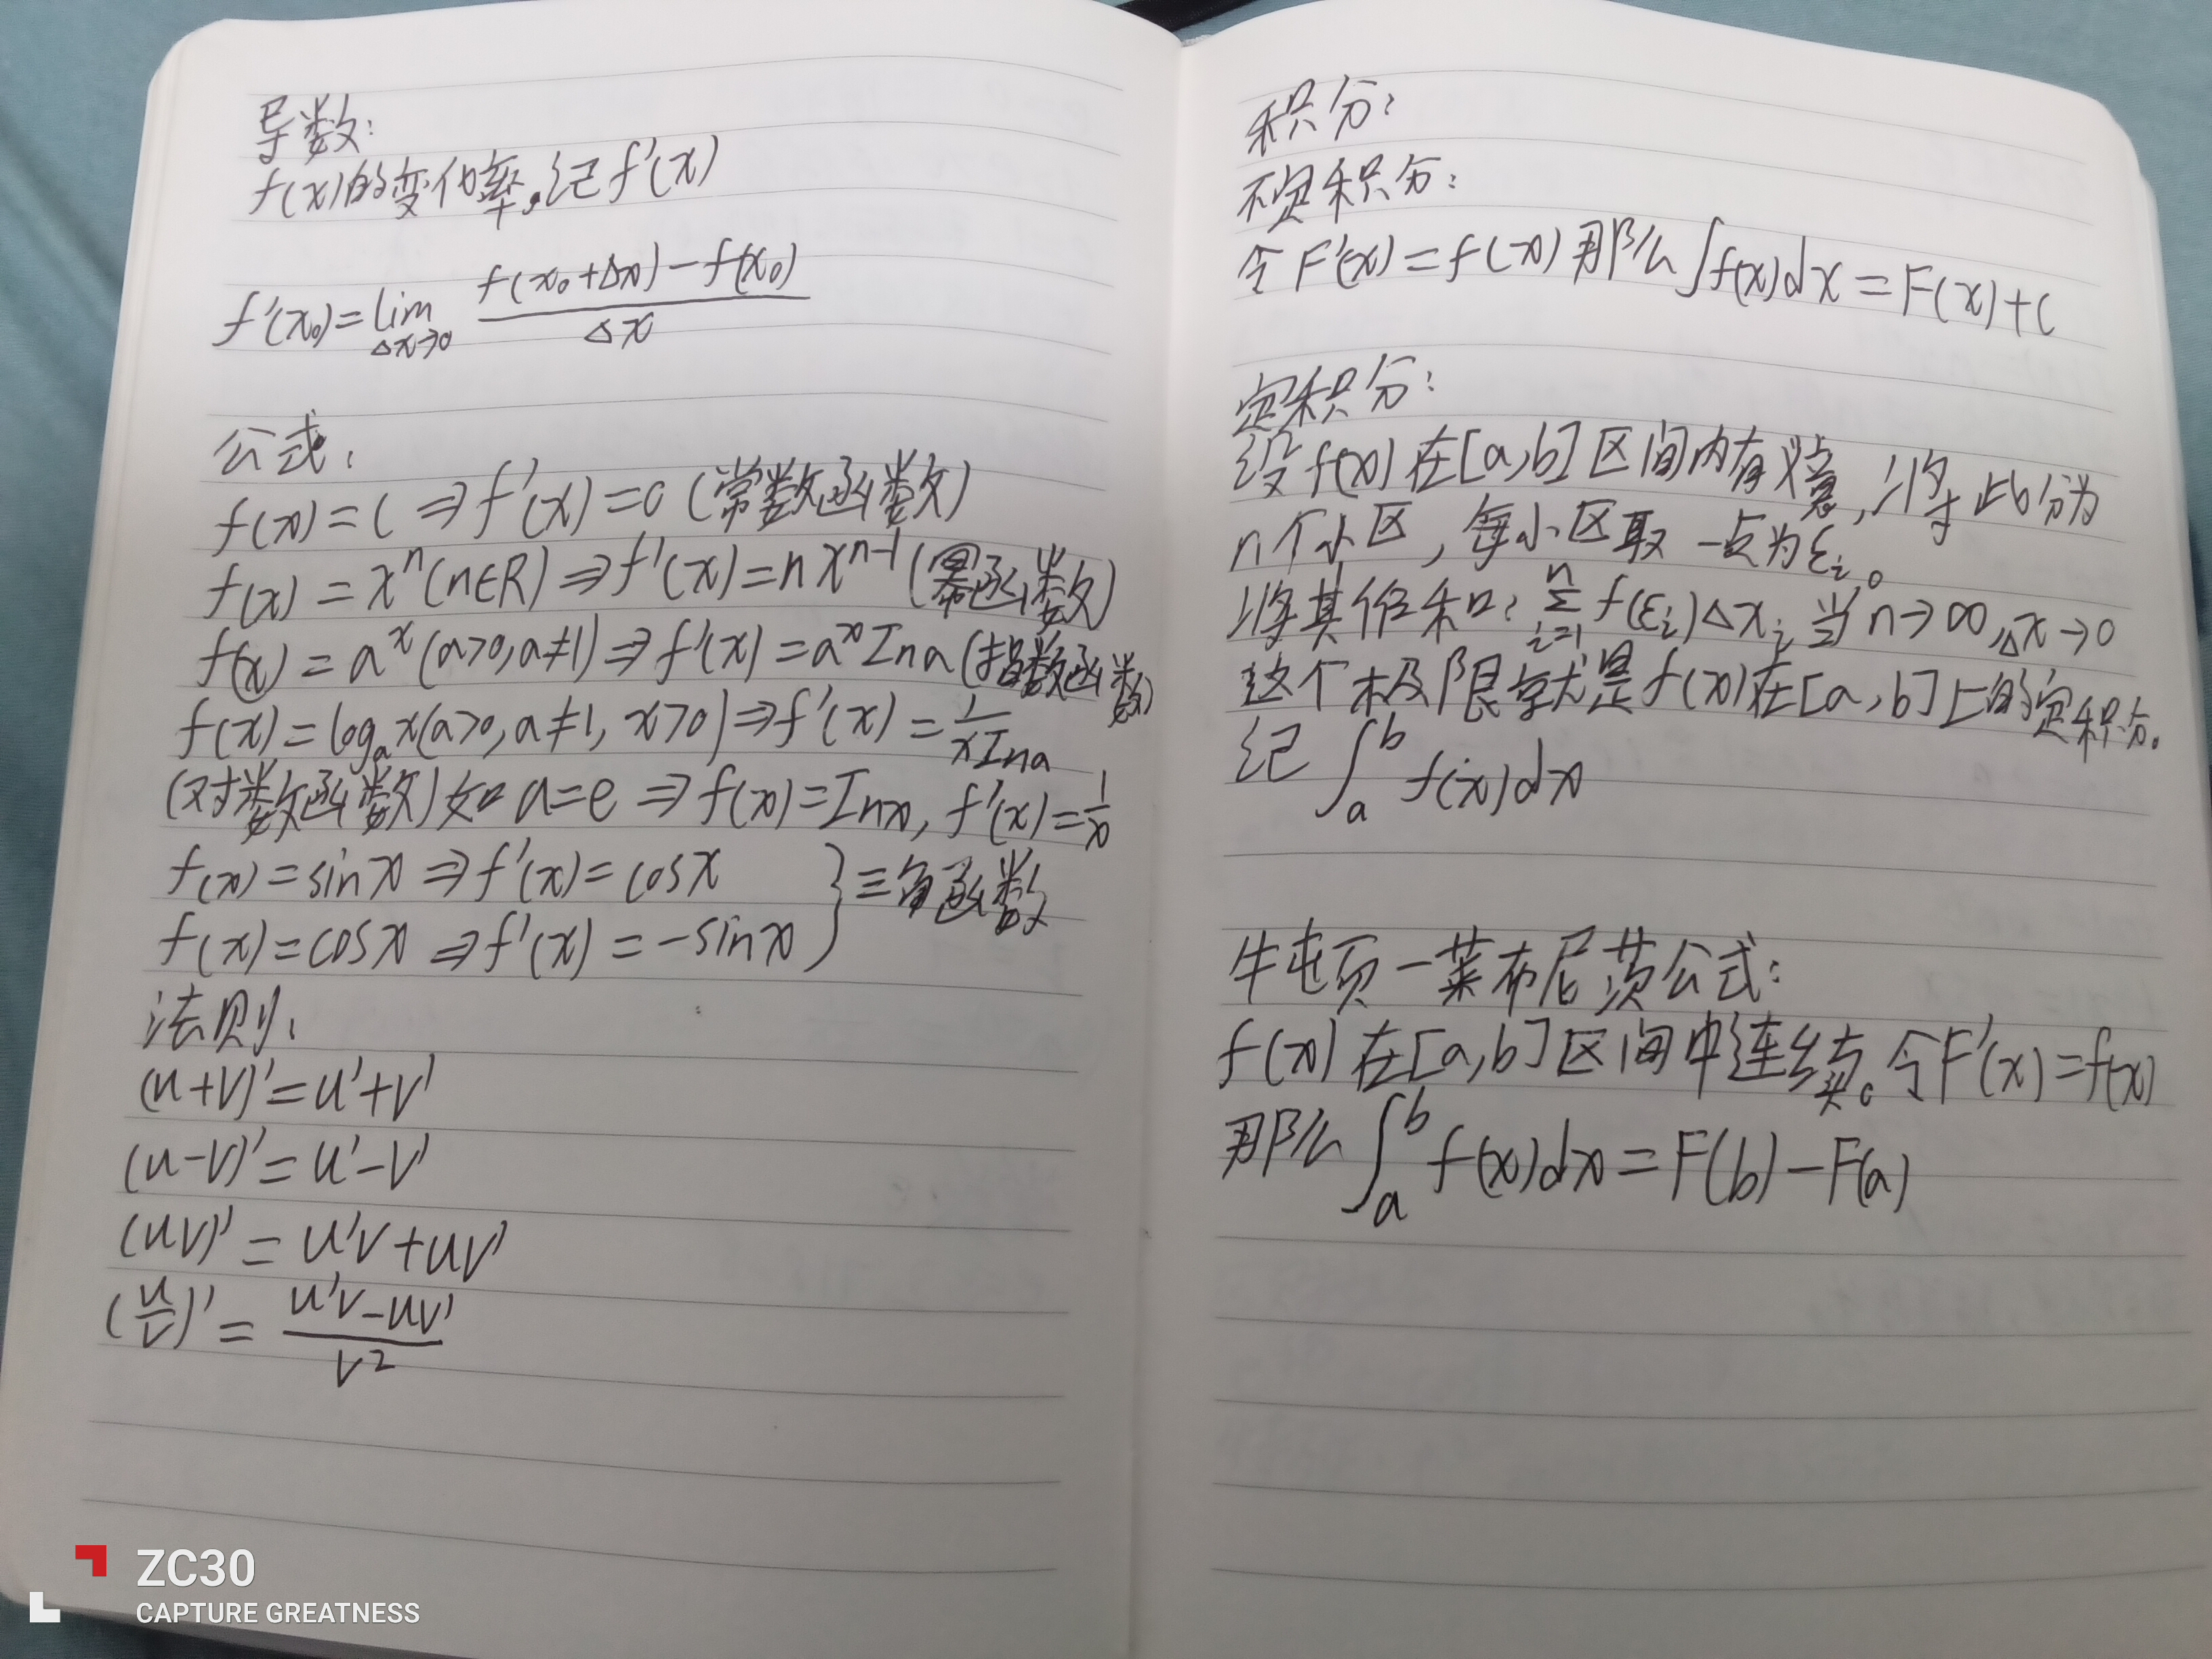 导数:
f(x)的变化率。记f'(x)
f'(x₀)=lim Δx→0 (f(x₀+Δx)-f(x₀))/Δx
公式:
f(x)=C⇒f'(x)=0(常数函数)
f(x)=xⁿ(n∈R)⇒f'(x)=nxⁿ⁻¹(幂函数)
f(x)=aˣ(a>0,a≠1)⇒f'(x)=aˣIna(指数函数)
f(x)=logₐx(a>0,a≠1,x>0)⇒f'(x)=1/(xIna)
(对数函数)如a=e⇒f(x)=Inx,f'(x)=1/x
f(x)=sinx⇒f'(x)=cosx
f(x)=cosx⇒f'(x)=-sinx }三角函数
法则:
(u+v)'=u'+v'
(u-v)'=u'-v'
(uv)'=u'v+uv'
(u/v)'=(u'v-uv')/v²
积分:
不定积分:
令F'(x)=f(x)那么∫f(x)dx=F(x)+C
定积分:
设f(x)在[a,b]区间内有义意,将此分为
n个小区,每小区取一点为ε_i。
将其作和:Σ_{i=1}^{n} f(ε_i)Δx_i 当n→∞,Δx→0
这个极限就是f(x)在[a,b]上的定积分。
记∫_a^b f(x)dx
牛屯顿-莱布尼茨公式:
f(x)在[a,b]区间中连续。令F'(x)=f(x)
那么∫_a^b f(x)dx=F(b)-F(a)
ZC30
CAPTURE GREATNESS